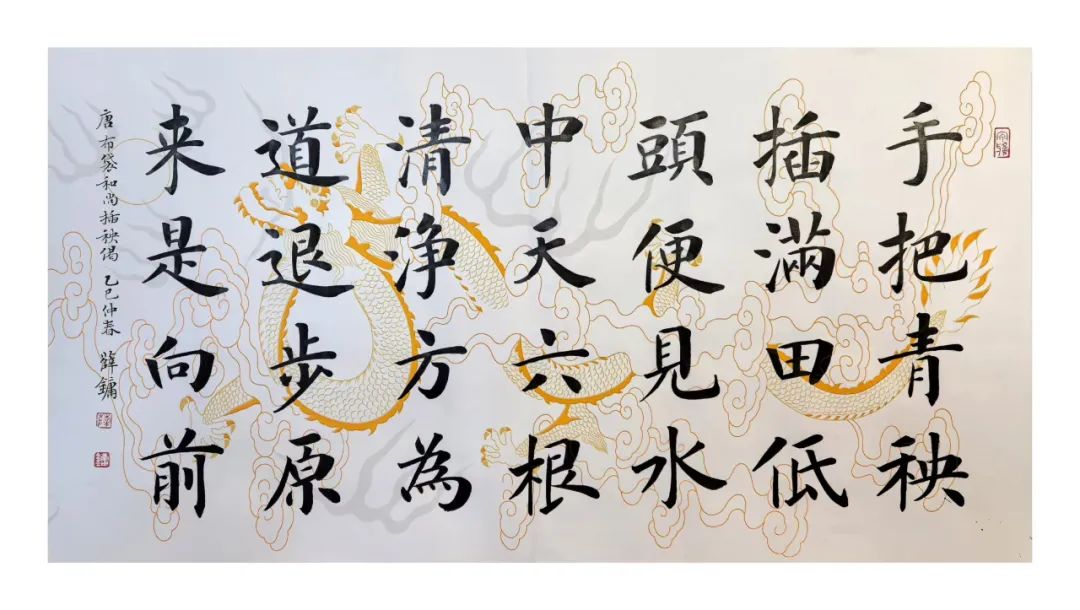 手把青秧
插滿田低
頭便見水
中天六根
清净方為
道退步原
来是向前
唐布袋和尚插秧偈 乙巳仲春 薛鏞